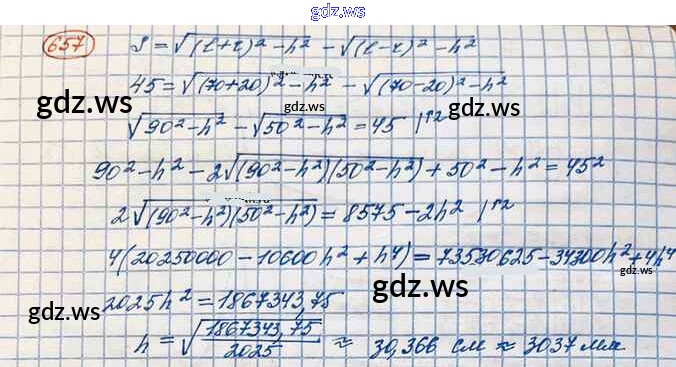 gdz.ws
657 S = √((l+r)² − h²) − √((l−r)² − h²)
45 = √((70+20)² − h²) − √((70−20)² − h²)
gdz.ws gdz.ws gdz.ws
√(90² − h²) − √(50² − h²) = 45 |↑²
90² − h² − 2√((90² − h²)(50² − h²)) + 50² − h² = 45²
gdz.ws
2√((90² − h²)(50² − h²)) = 8575 − 2h² |↑²
gdz.ws gdz.ws
4(20250000 − 10600h² + h⁴) = 73530625 − 34300h² + 4h⁴
gdz.ws
2025h² = 1867343,75
gdz.ws gdz.ws
h = √(1867343,75 / 2025) ≈ 30,366 см ≈ 3037 мм
gdz.ws